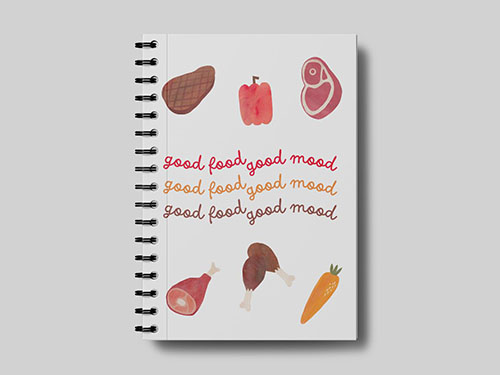 good food good mood
good food good mood
good food good mood